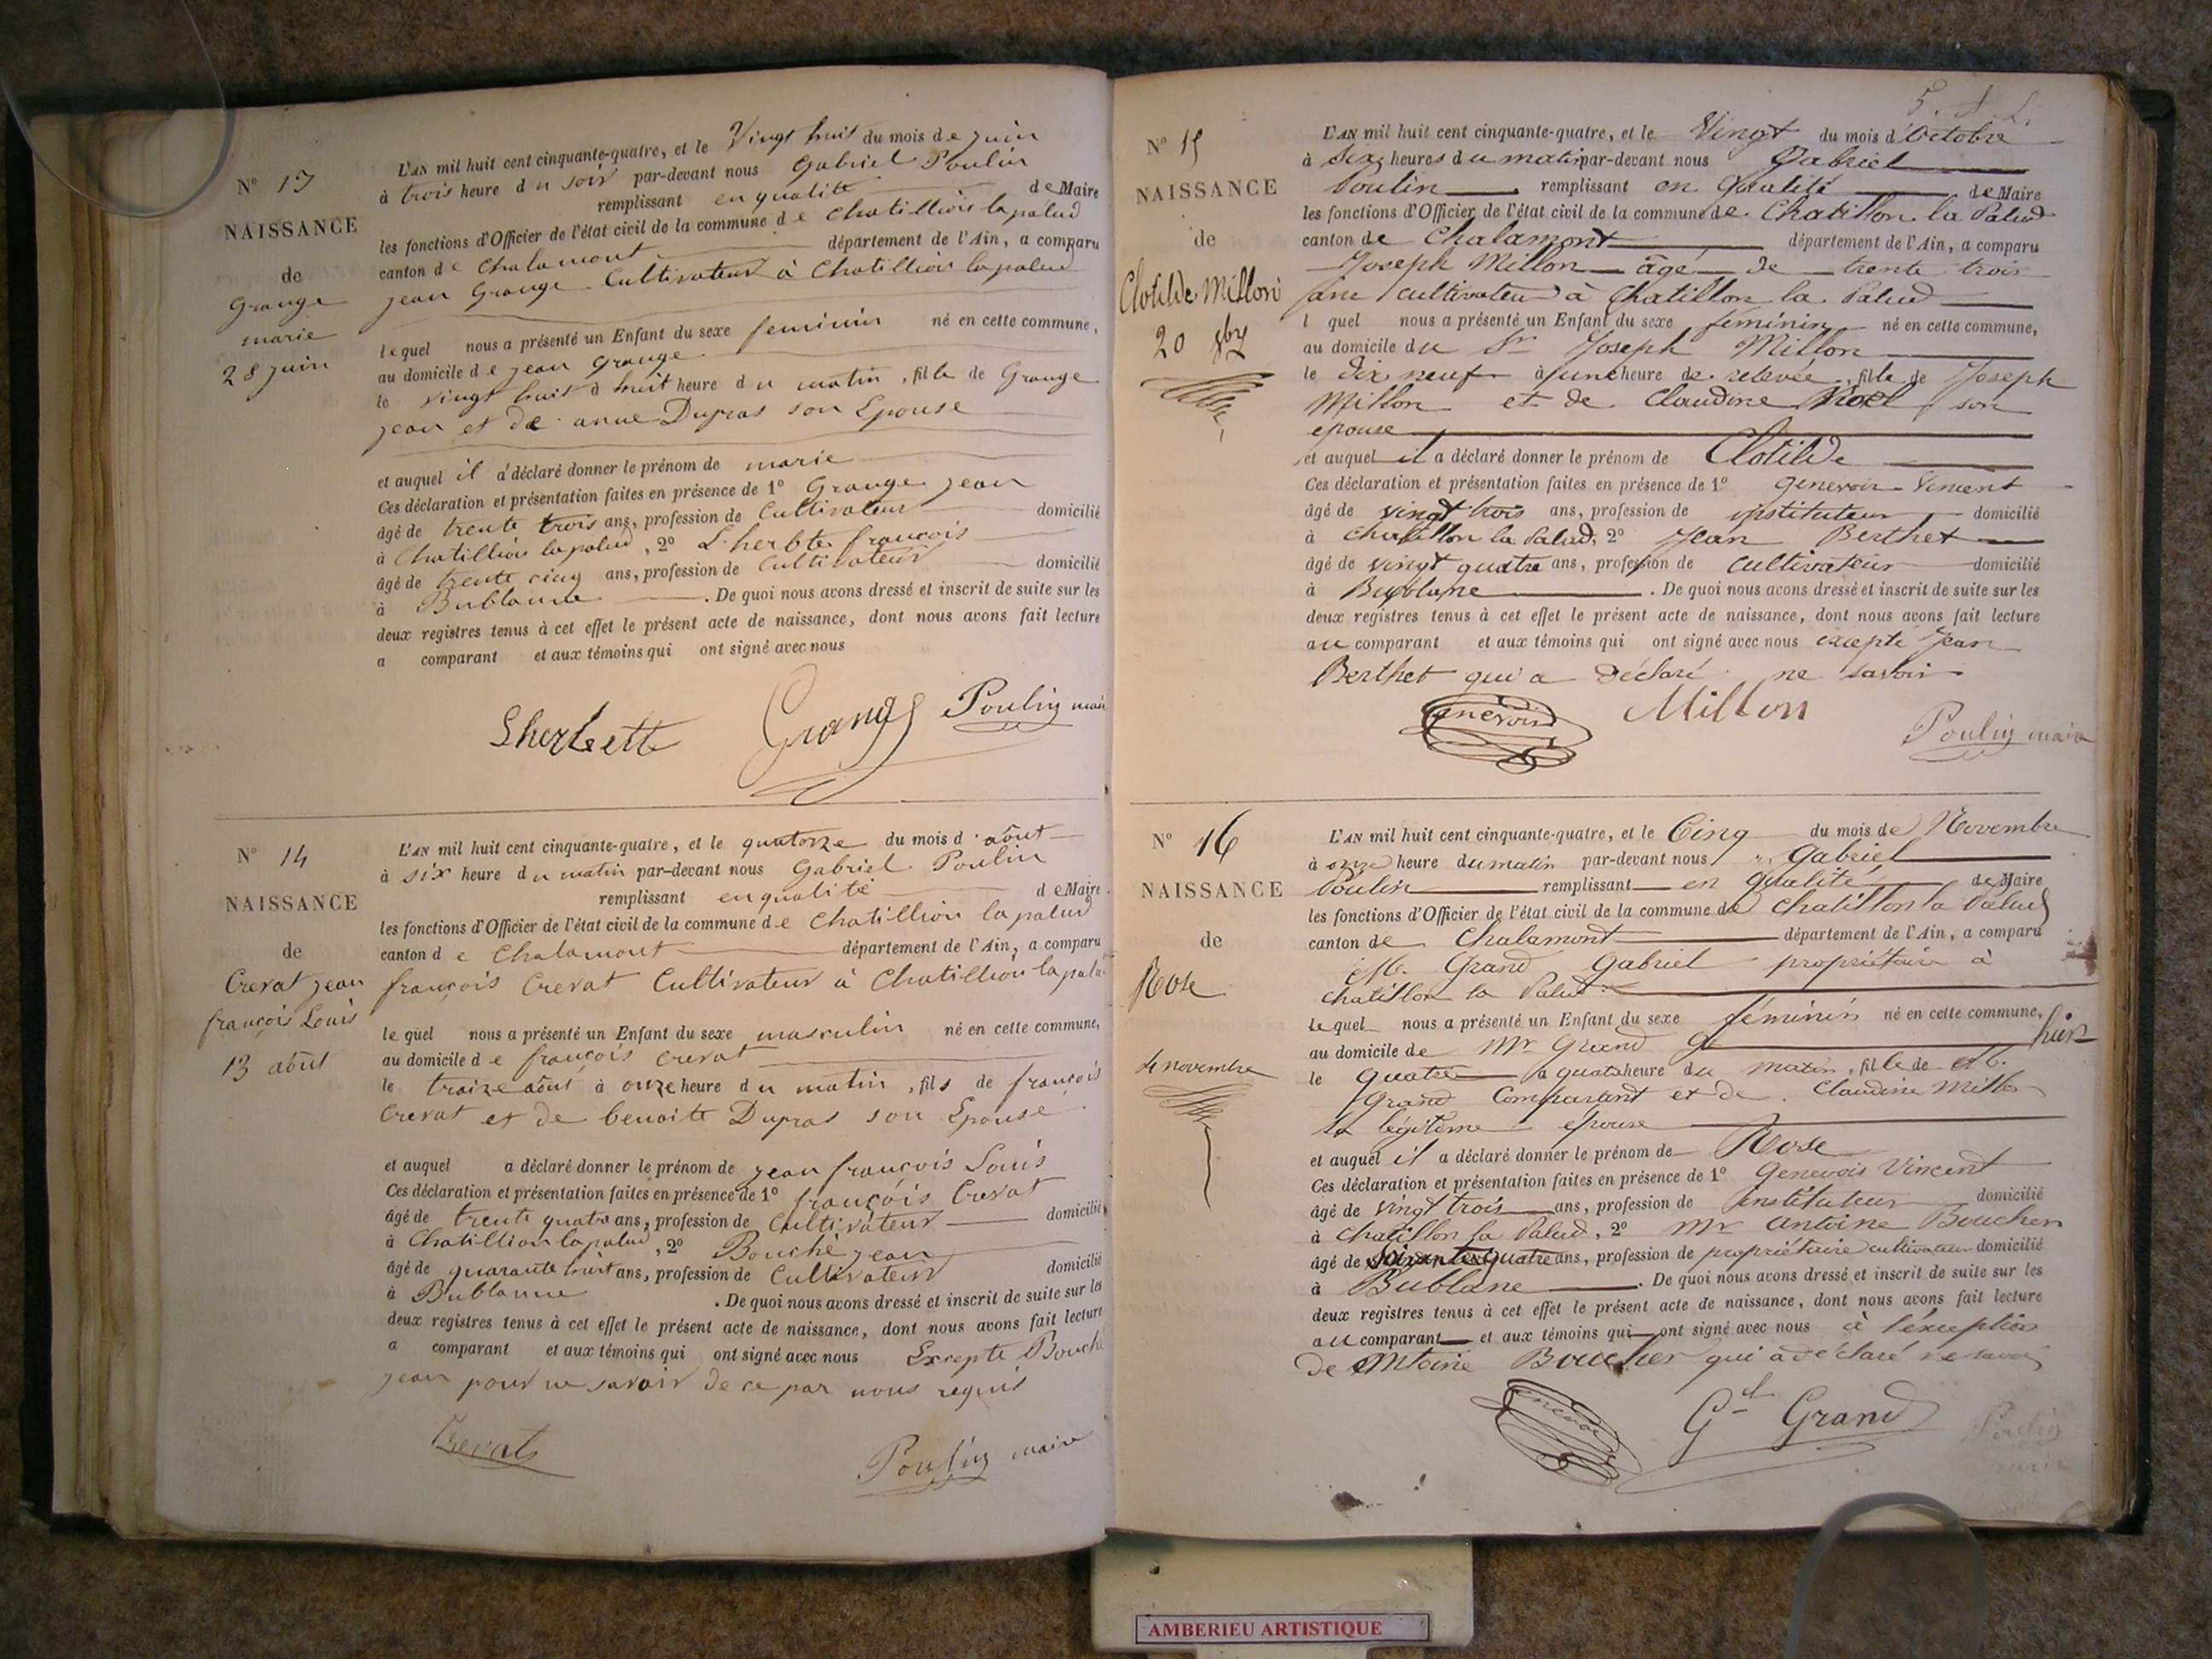 N° 13
NAISSANCE
de
Grange
marie
28 juin
L'AN mil huit cent cinquante-quatre, et le Vingt huit du mois de juin
à trois heure du soir par-devant nous Gabriel Poulin
remplissant en qualité de Maire
les fonctions d'Officier de l'état civil de la commune de Chatillion la palud
canton de Chalamont département de l'Ain, a comparu
jean Grange Cultivateur à Chatillion la palud
lequel nous a présenté un Enfant du sexe feminin né en cette commune,
au domicile de jean Grange
le vingt huit à huit heure du matin, fille de Grange
jean et de anne Dupras son Epouse
et auquel il a déclaré donner le prénom de marie
Ces déclaration et présentation faites en présence de 1° Grange jean
âgé de trente trois ans, profession de Cultivateur domicilié
à Chatillion la palud, 2° L'herbte françois
âgé de trente cinq ans, profession de Cultivateur domicilié
à Bublanne. De quoi nous avons dressé et inscrit de suite sur les
deux registres tenus à cet effet le présent acte de naissance, dont nous avons fait lecture
a comparant et aux témoins qui ont signé avec nous
Lherbette Grange Poulin maire
N° 14
NAISSANCE
de
Crevat jean
françois Louis
13 aout
L'AN mil huit cent cinquante-quatre, et le quatorze du mois d'aout
à six heure du matin par-devant nous Gabriel Poulin
remplissant en qualité de Maire
les fonctions d'Officier de l'état civil de la commune de Chatillion la palud
canton de Chalamont département de l'Ain, a comparu
françois Crevat Cultivateur à Chatillion la palud
le quel nous a présenté un Enfant du sexe masculin né en cette commune,
au domicile de françois crevat
le traize aout à onze heure du matin, fils de françois
Crevat et de benoite Dupras son Epouse
et auquel a déclaré donner le prénom de jean françois Louis
Ces déclaration et présentation faites en présence de 1° françois Crevat
âgé de trente quatre ans, profession de Cultivateur domicilié
à Chatillion la palud, 2° Bouché jean
âgé de quarante huit ans, profession de Cultivateur domicilié
à Bublanne. De quoi nous avons dressé et inscrit de suite sur les
deux registres tenus à cet effet le présent acte de naissance, dont nous avons fait lecture
a comparant et aux témoins qui ont signé avec nous Excepte Bouché
jean pour ne savoir de ce par nous requis
Crevat Poulin maire
N° 15
NAISSANCE
de
Clotilde Millon
20 8bre
L'AN mil huit cent cinquante-quatre, et le Vingt du mois d'Octobre
à six heures du matin par-devant nous Gabriel
Poulin remplissant en qualité de Maire
les fonctions d'Officier de l'état civil de la commune de Chatillon la Palud
canton de Chalamont département de l'Ain, a comparu
Joseph Millon âgé de trente trois
ans cultivateur à Chatillon la Palud
l quel nous a présenté un Enfant du sexe féminin né en cette commune,
au domicile du Sr Joseph Millon
le dix neuf à une heure de relevée, fille de Joseph
Millon et de Claudine Noël son
epouse
et auquel il a déclaré donner le prénom de Clotilde
Ces déclaration et présentation faites en présence de 1° Genevois Vincent
âgé de vingt trois ans, profession de instituteur domicilié
à Chatillon la Palud, 2° Jean Berthet
âgé de vingt quatre ans, profession de cultivateur domicilié
à Bublane. De quoi nous avons dressé et inscrit de suite sur les
deux registres tenus à cet effet le présent acte de naissance, dont nous avons fait lecture
au comparant et aux témoins qui ont signé avec nous excepté Jean
Berthet qui a déclaré ne savoir
Genevois Millon Poulin maire
N° 16
NAISSANCE
de
Rose
4 novembre
L'AN mil huit cent cinquante-quatre, et le Cinq du mois de Novembre
à onze heure du matin par-devant nous Gabriel
Poulin remplissant en qualité de Maire
les fonctions d'Officier de l'état civil de la commune de Chatillon la Palud
canton de Chalamont département de l'Ain, a comparu
M. Grand Gabriel propriétaire à
chatillon la Palud
le quel nous a présenté un Enfant du sexe féminin né en cette commune,
au domicile de Mr Grand Gel hier
le quatre à quatre heure du matin, fille de M.
Grand Comparant et de Claudine Millon
sa légitime épouse
et auquel il a déclaré donner le prénom de Rose
Ces déclaration et présentation faites en présence de 1° Genevois Vincent
âgé de vingt trois ans, profession de instituteur domicilié
à Chatillon la Palud, 2° Mr Antoine Boucher
âgé de soixante quatre ans, profession de propriétaire cultivateur domicilié
à Bublane. De quoi nous avons dressé et inscrit de suite sur les
deux registres tenus à cet effet le présent acte de naissance, dont nous avons fait lecture
au comparant et aux témoins qui ont signé avec nous à l'exception
de Antoine Boucher qui a déclaré ne savoir
Genevois Gel Grand Poulin maire
AMBERIEU ARTISTIQUE